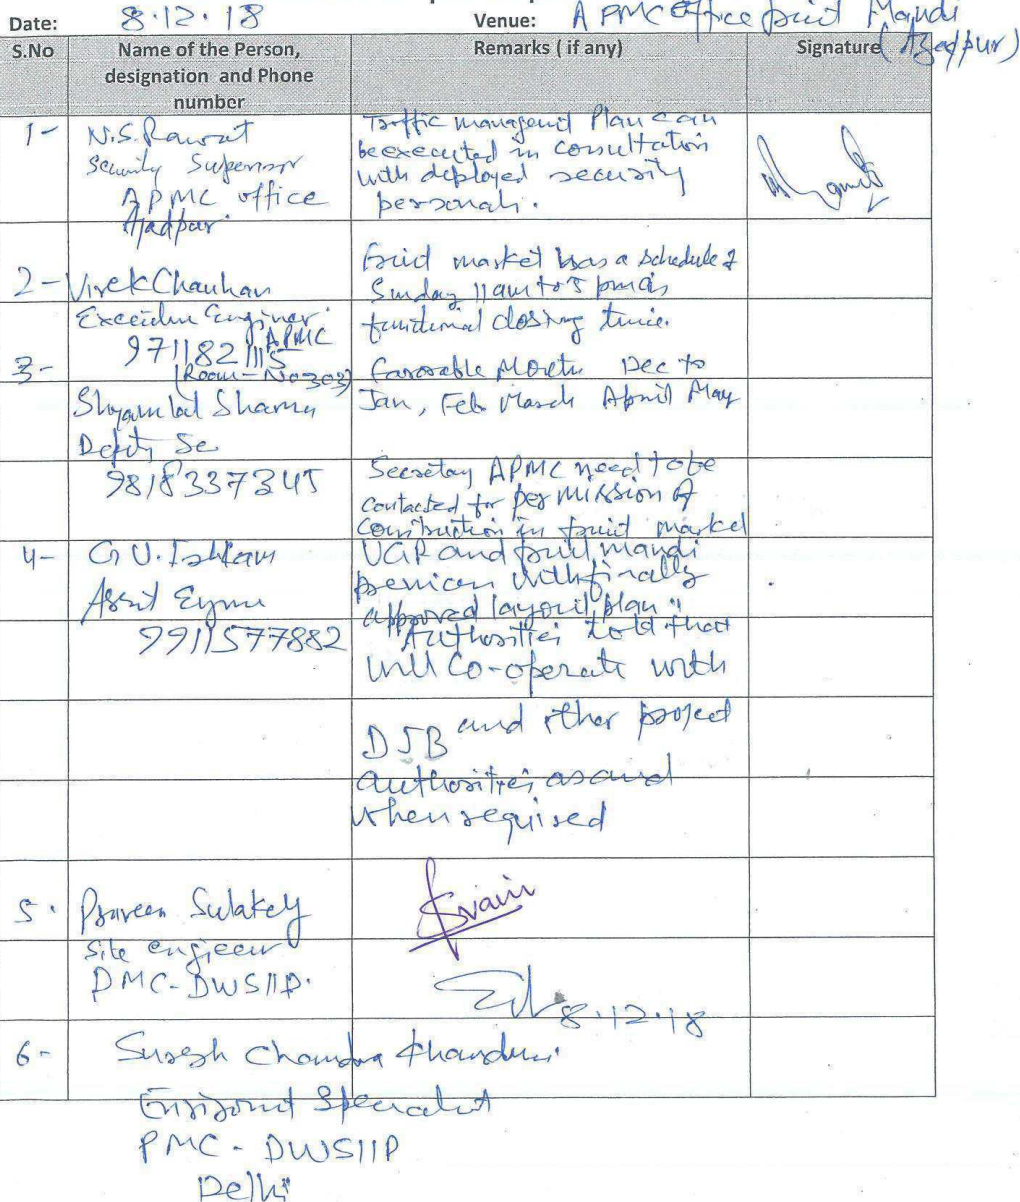 Date: 8.12.18 Venue: APMC Office fruit Mandi
(Azadpur)
S.No Name of the Person, designation and Phone number Remarks ( if any) Signature
1- N.S. Rawat
Security Supervisor
APMC office
Azadpur.
Traffic management Plan can
be executed in consultation
with deployed security
personals.
2- Vivek Chauhan
Executive Engineer
APMC
9711821115
(Room-No 303)
Fruit market has a schedule of
Sunday 11am to 5 pm as
functional closing time.
3-
Shyamlal Sharma
Deputy Se
9818337345
favorable Month Dec to
Jan, Feb March April May
Secretay APMC need to be
contacted for permission of
Constuction in fruit market
4- G.U. Islam
Assit Engine
9911577882
UGR and fruit mandi
with finally
approved layout plan"
"Authorities told that
will Co-operate with
DJB and other project
authorities as and
when required
5. Praveen Sulakey
Site engieer
PMC-DWSIIP.
8.12.18
6- Suresh Chandra Khanduri
Specialist
PMC - DWSIIP
Delhi